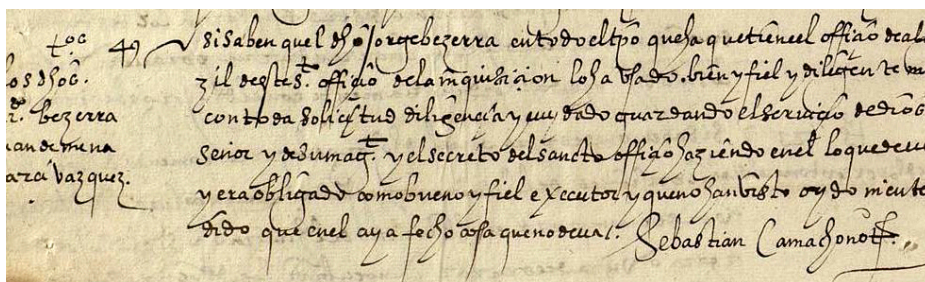 t.os 4º si saben quel dho Jorge bezerra en todo el tpo que ha que tiene el officio de al
zil deste s.to officio de la inquisicion lo ha usado bien y fiel y diligente m
los dhos. con toda solicitud diligencia y cuydado guardando el servicio de dios
bezerra señor y de su mag.t y el secreto del sancto officio haziendo en el lo que deu
juan de mena y era obligado como bueno y fiel executor y que no han visto oydo ni ente
vazquez. dido que en el aya fecho cosa que no deua. Sebastian Camacho not.